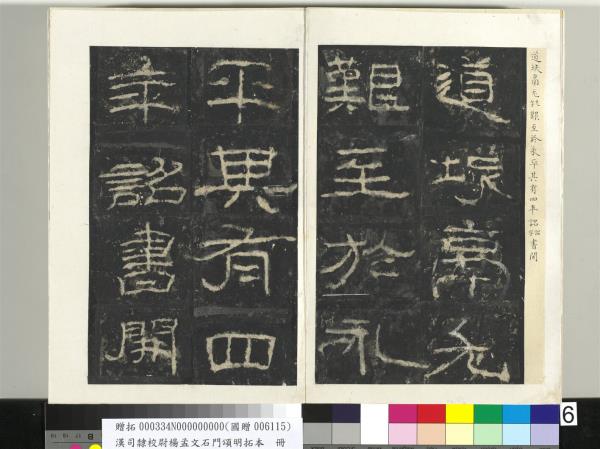 道垓鬲尤艱至於永平其有四年詔書開
道垓鬲尤
艱至於永
平其有四
年詔書開
贈拓 000334N000000000(國贈 006115)
漢司隸校尉楊孟文石門頌明拓本 冊
6
8